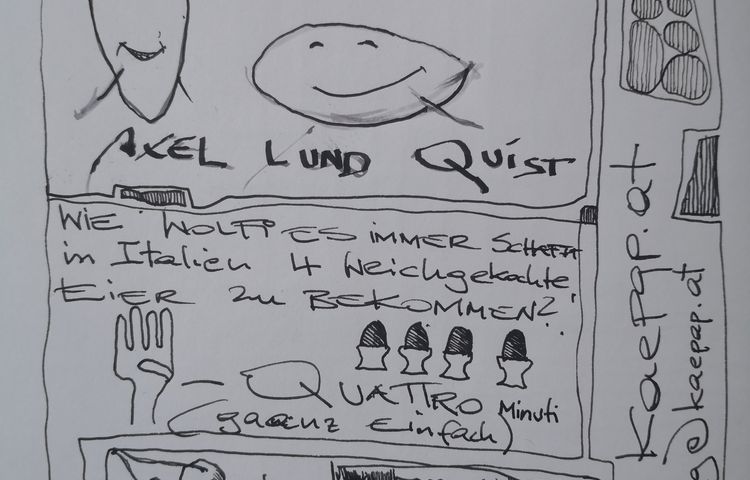 AXEL LUND QUIST
WIE WOLFI ES IMMER SCHAFFT
in Italien 4 Weichgekochte
EiER zu BEKOMMEN?
- QUATTRO Minuti
(gaaanz Einfach)
kaepap.at
g@kaepap.at